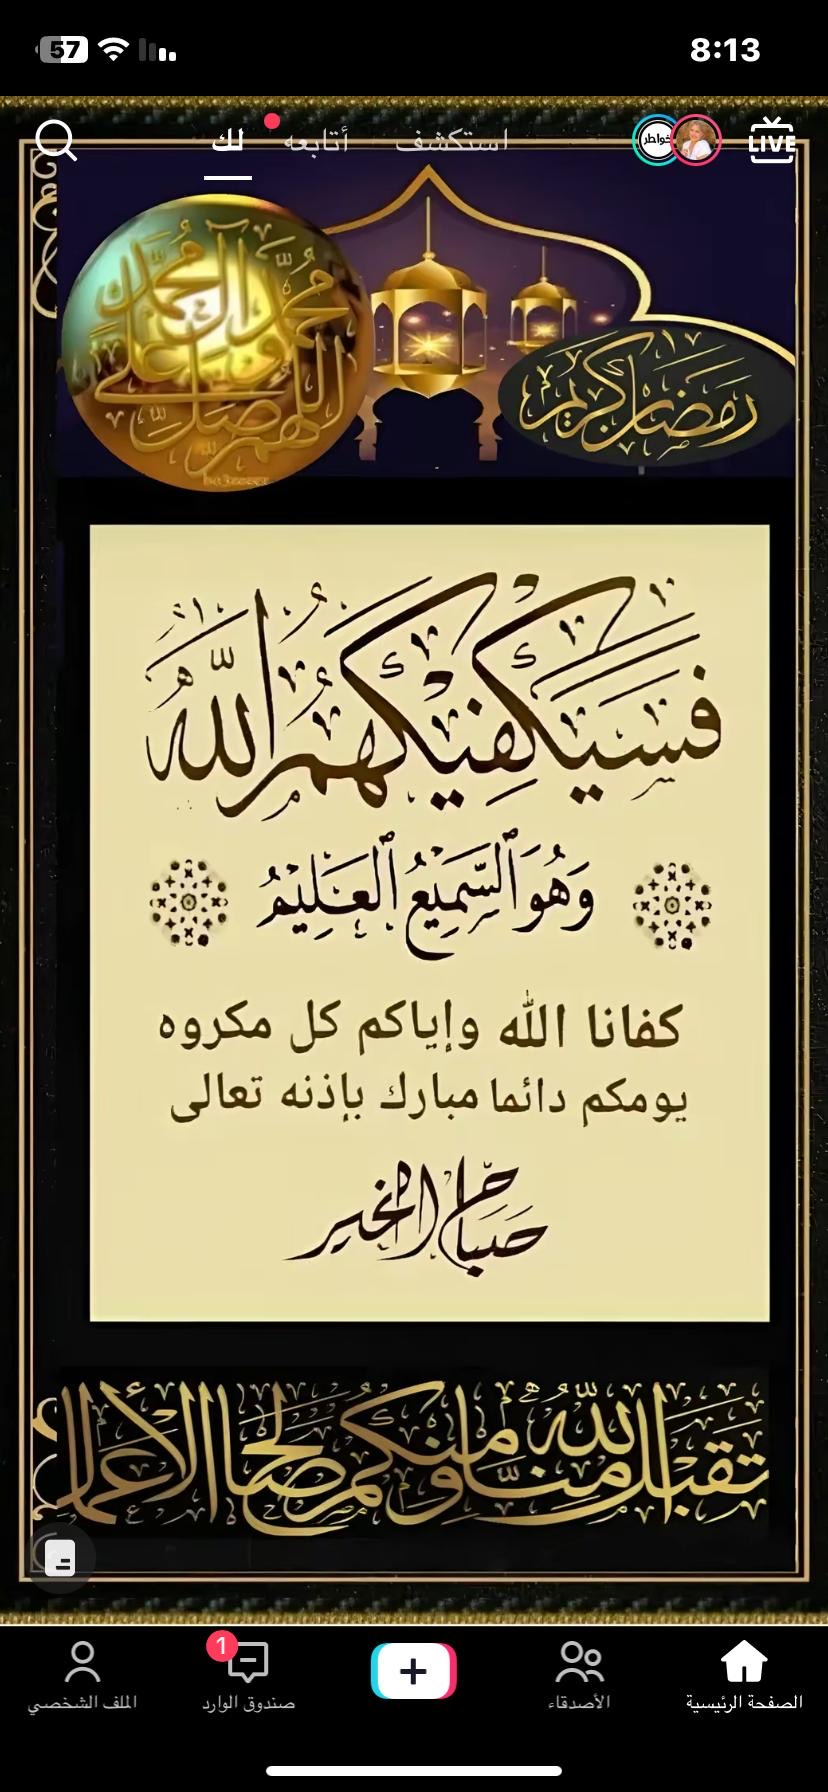 57
8:13
لك
أتابعه
استكشف
خواطر
LIVE
اللهم صل على محمد وآل محمد
رمضان كريم
فَسَيَكْفِيكَهُمُ اللَّهُ
وَهُوَ السَّمِيعُ الْعَلِيمُ
كفانا الله وإياكم كل مكروه
يومكم دائما مبارك بإذنه تعالى
صباح الخير
تقبل الله منا ومنكم صالح الأعمال
1
الصفحة الرئيسية
الأصدقاء
صندوق الوارد
الملف الشخصي